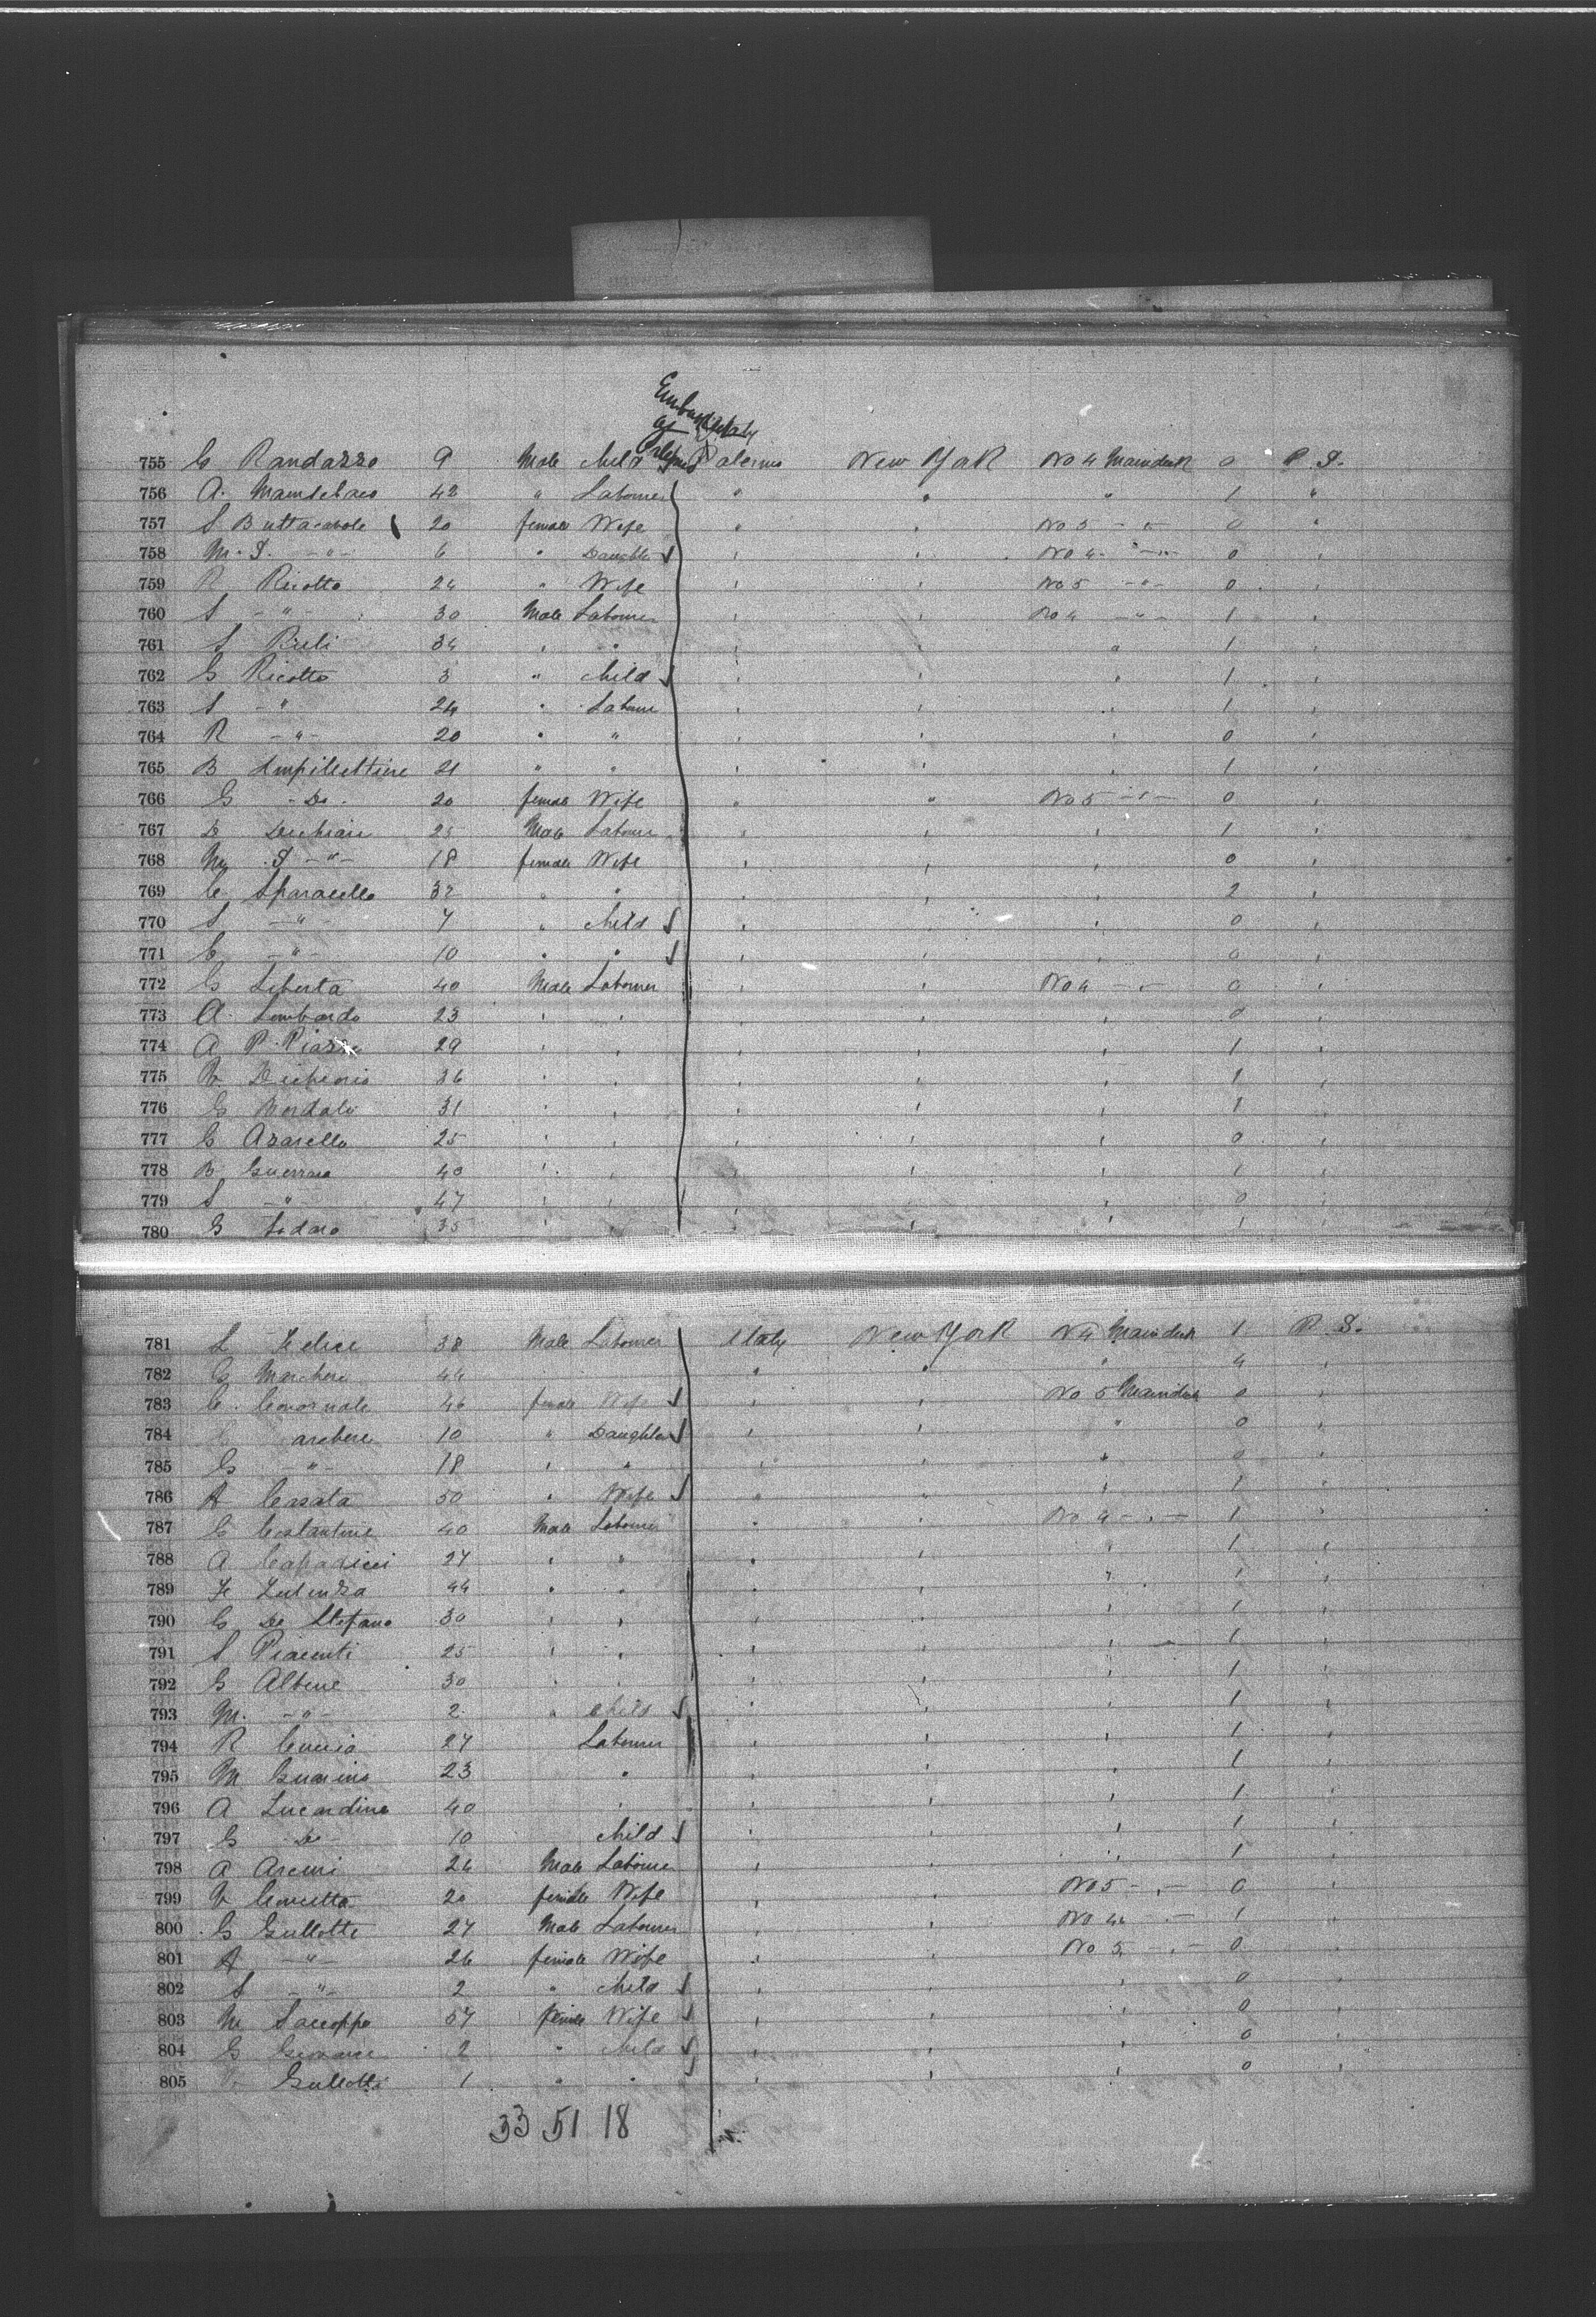 Embarked
at Italy
755 C Randazzo 9 Male Child Palermo New York No 4 Maindeck 0 P. S.
756 A. 42 " Labourer " " " 1 "
757 S Buttacavole 20 female Wife " " No 5 -"- 0 "
758 M. S. -"- 6 " Daughter " " No 4 -"- 0 "
759 R Ricotto 24 " Wife " " No 5 -"- 0 "
760 S -"- 30 Male Labourer " " No 4 -"- 1 "
761 S 34 " " " " " 1 "
762 G Ricotto 3 " Child " " " 1 "
763 S -"- 24 " Labourer " " " 1 "
764 R -"- 20 " " " " " 0 "
765 B Ampilettiere 21 " " " " " 1 "
766 G -Do- 20 female Wife " " No 5 -"- 0 "
767 D 25 Male Labourer " " " 1 "
768 M S -"- 18 female Wife " " " 0 "
769 C Sparacello 32 " " " " " 2 "
770 S -"- 7 " Child " " " 0 "
771 C -"- 10 " " " " " 0 "
772 G Liberta 40 Male Labourer " " No 4 -"- 0 "
773 A. Lombardo 23 " " " " " 0 "
774 A P. Piazza 29 " " " " " 1 "
775 36 " " " " " 1 "
776 G 31 " " " " " 1 "
777 C Azarello 25 " " " " " 0 "
778 B Guerrera 40 " " " " " 1 "
779 S -"- 47 " " " " " 0 "
780 G Sodaro 35 " " " " " 1 "
781 L Felice 38 Male Labourer Italy New York No 4 Maindeck 1 P. S.
782 G Marchere 44 " " " 4 "
783 C. 46 female Wife " " No 5 Maindeck 0 "
784 archere 10 " Daughter " " " 0 "
785 G -"- 18 " " " " " 0 "
786 A Cassata 50 " Wife " " " 1 "
787 C Costantine 40 Male Labourer " " No 4 -"- 1 "
788 A 27 " " " " " 1 "
789 F 44 " " " " " 1 "
790 G De Stefano 30 " " " " " 1 "
791 S Piacenti 25 " " " " " 1 "
792 G Albene 30 " " " " " 1 "
793 M. -"- 2 " Child " " " 1 "
794 R Cuccio 27 Labourer " " " 1 "
795 M Guarino 23 " " " " 1 "
796 A Lucardine 40 " " " " 1 "
797 G -Do- 10 Child " " " 1 "
798 A 26 Male Labourer " " " 1 "
799 V Concetta 20 female Wife " " No 5 -"- 0 "
800 G Gullotte 27 Male Labourer " " No 4 -"- 1 "
801 A -"- 26 female Wife " " No 5 -"- 0 "
802 S -"- 2 " Child " " " 0 "
803 M Saccoppo 57 female Wife " " " 0 "
804 G 2 " Child " " " 0 "
805 Gullotti 1 " " " " " 0 "
33 51 18